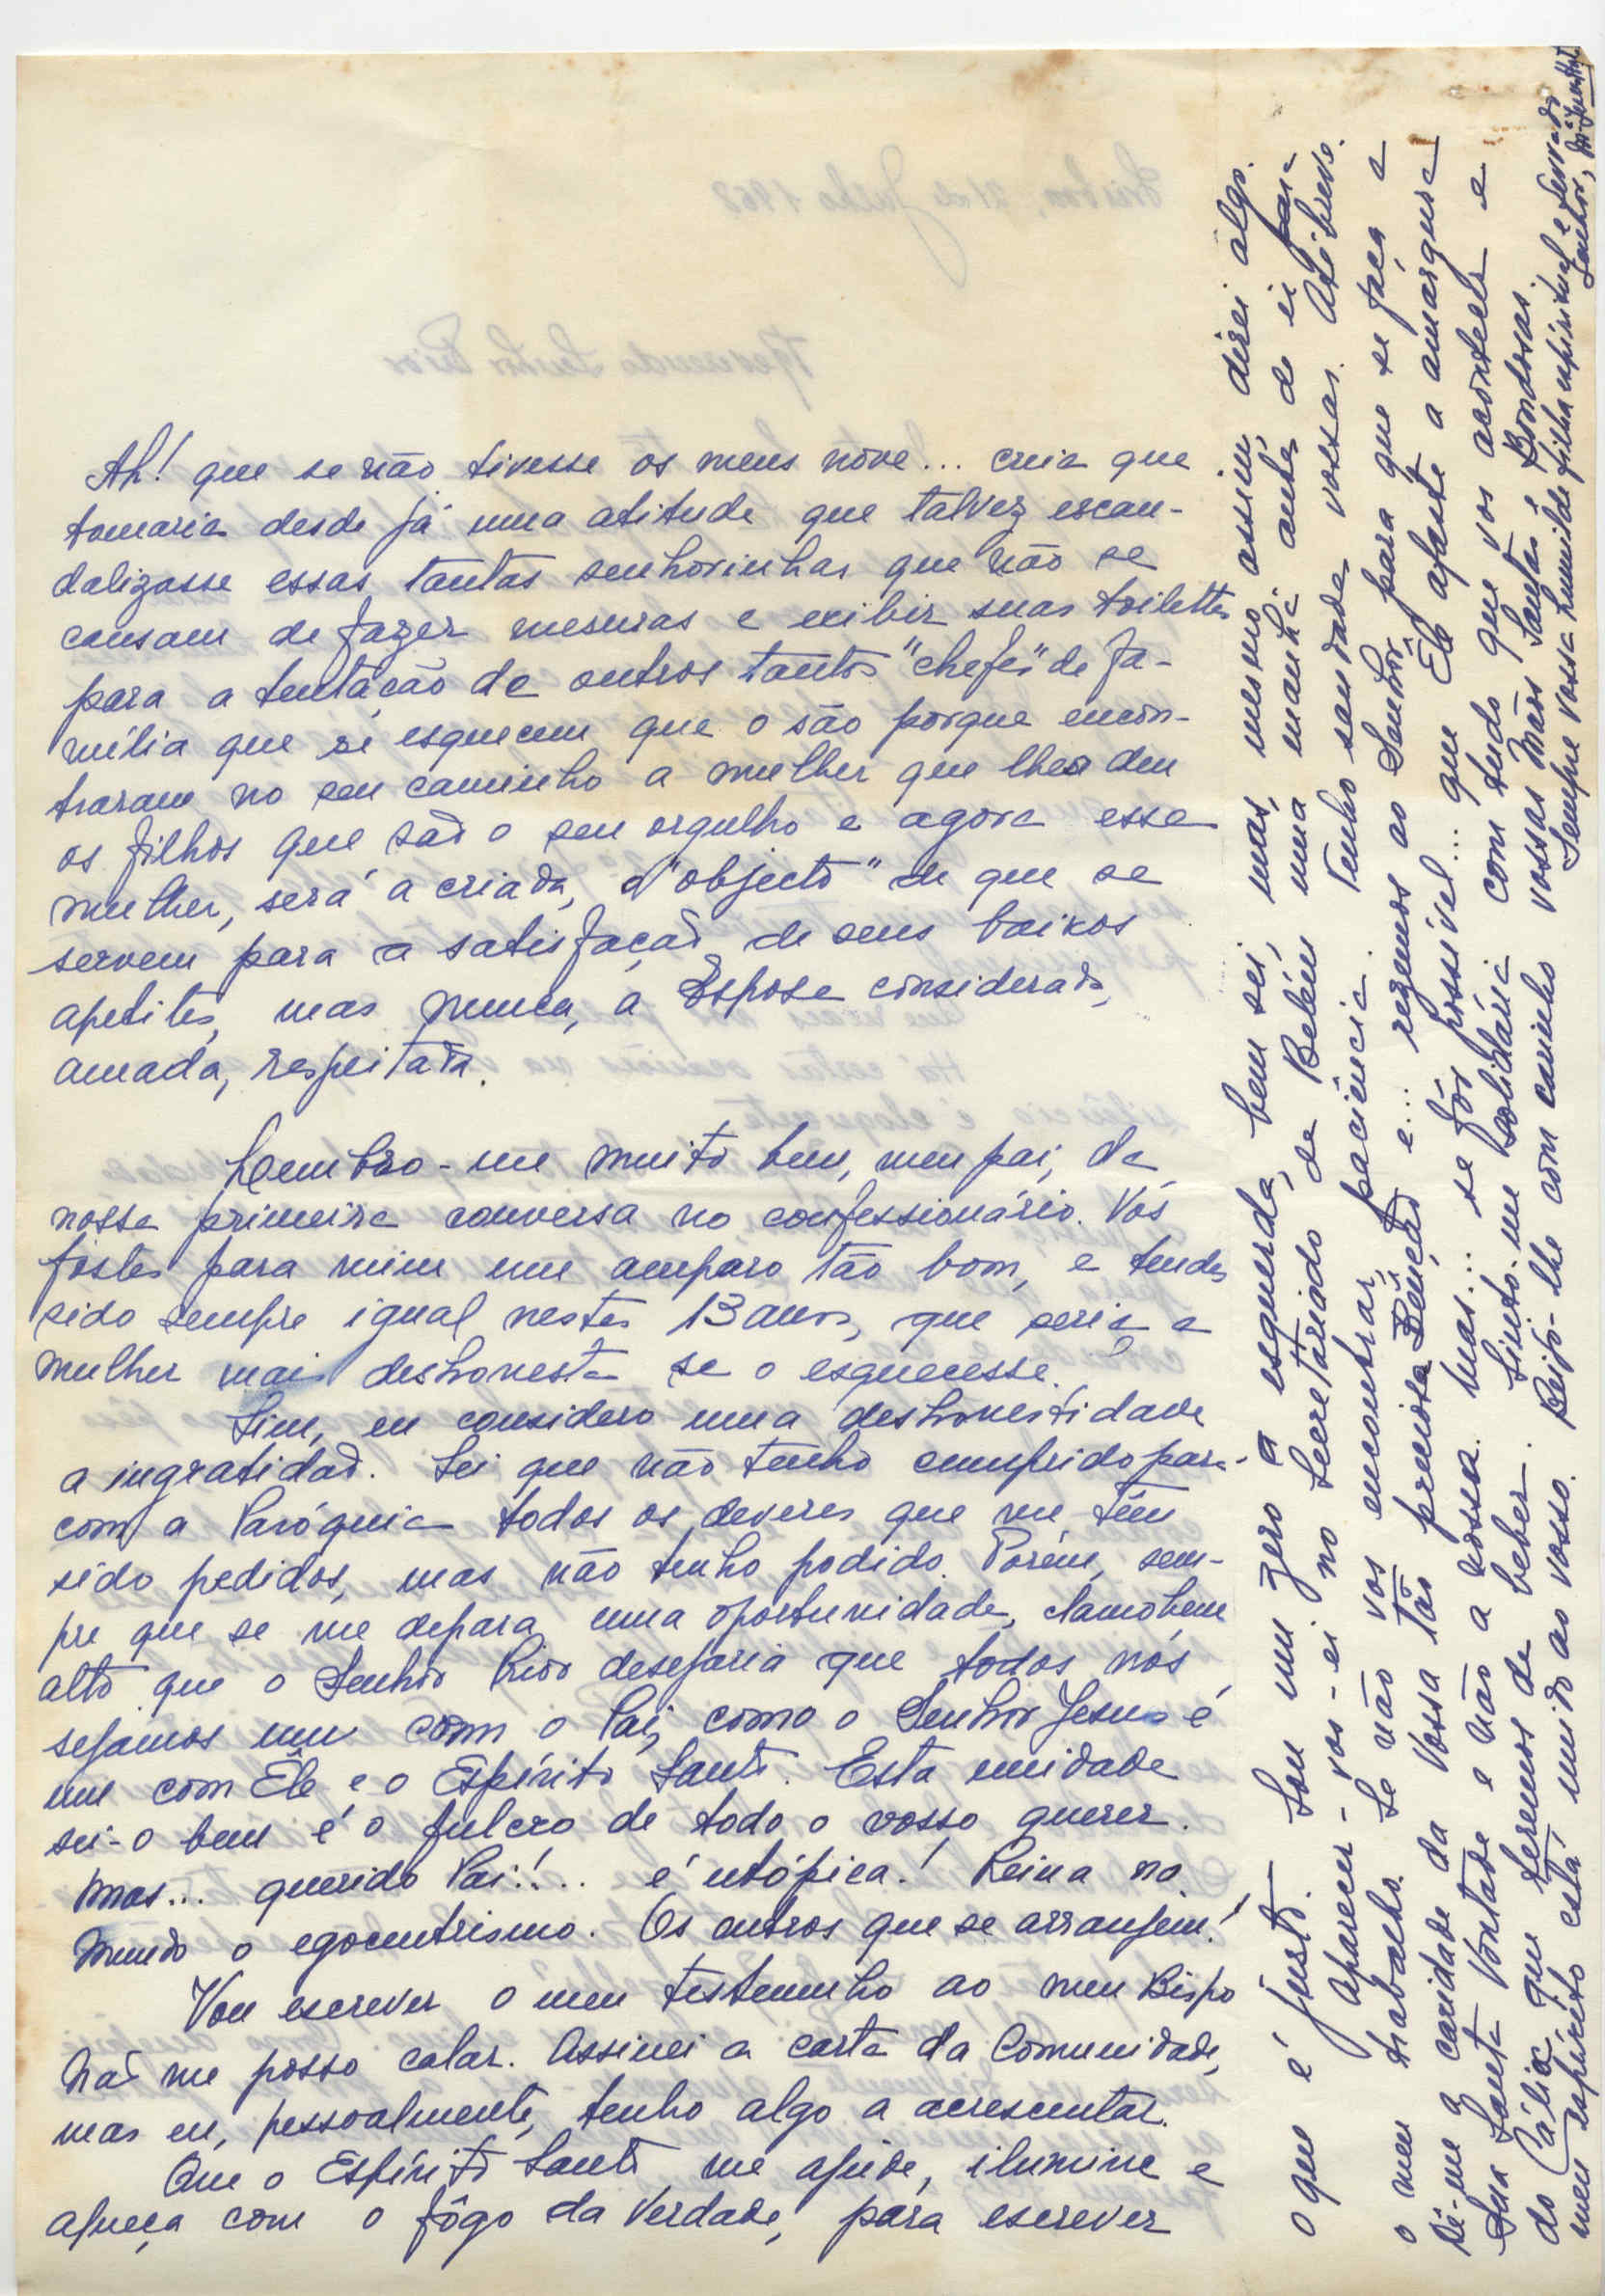 Ah! que se não tivesse os meus nove... creia que
tomaria desde já uma atitude que talvez escan-
dalizasse essas tantas senhorinhas que não se
cansam de fazer mesuras e exibir suas toilettes
para a tentação de outros tantos "chefes" de fa-
mília que se esquecem que o são porque encon-
traram no seu caminho a mulher que lhes deu
os filhos que são o seu orgulho e agora essa
mulher, será a criada, o "objecto" de que se
servem para a satisfação de seus baixos
apetites, mas nunca, a Esposa considerada,
amada, respeitada.
Lembro-me muito bem, meu pai, da
nossa primeira conversa no confessionário. Vós
fostes para mim um amparo tão bom, e tendes
sido sempre igual nestes 13 anos, que seria a
mulher mais deshonesta se o esquecesse.
Sim, eu considero uma deshonestidade
a ingratidão. Sei que não tenho cumprido para
com a Paróquia todos os deveres que me têm
sido pedidos, mas não tenho podido. Porém, sem-
pre que se me depara uma oportunidade, clamo bem
alto que o Senhor Prior desejaria que todos nós
sejamos um com o Pai, como o Senhor Jesus é
um com Êle e o Espírito Santo. Esta unidade
sei-o bem é o fulcro de todo o vosso querer.
Mas... querido Pai!... é utópica! Reina no
Mundo o egocentrismo. Os outros que se arranjem!
Vou escrever o meu testemunho ao meu Bispo
Não me posso calar. Assinei a carta da Comunidade,
mas eu, pessoalmente, tenho algo a acrescentar.
Que o Espírito Santo me ajude, ilumine e
aqueça com o fôgo da Verdade, para escrever
o que é justo. Sou um zero à esquerda, bem sei, mas, mesmo assim, direi algo.
Aparecer-vos-ei no Secretariado de Belém uma manhã antes de ir para
o meu trabalho. Se não vos encontrar, paciência. Tenho saudades vossas. Até breve.
Dê-me a caridade da Vossa tão preciosa Bênção e... rezemos ao Senhor para que se faça a
Sua Santa Vontade e não a nossa. Mas... se fôr possível... que Ele afaste a amargura
do Cálix que teremos de beber. Sinto-me solidária com tudo que vos acontecer e
meu espírito está unido ao vosso. Beijo-lhe com carinho vossas Mãos Santas e Bondosas.
Sempre vossa humilde filha espiritual e serva do
Senhor,